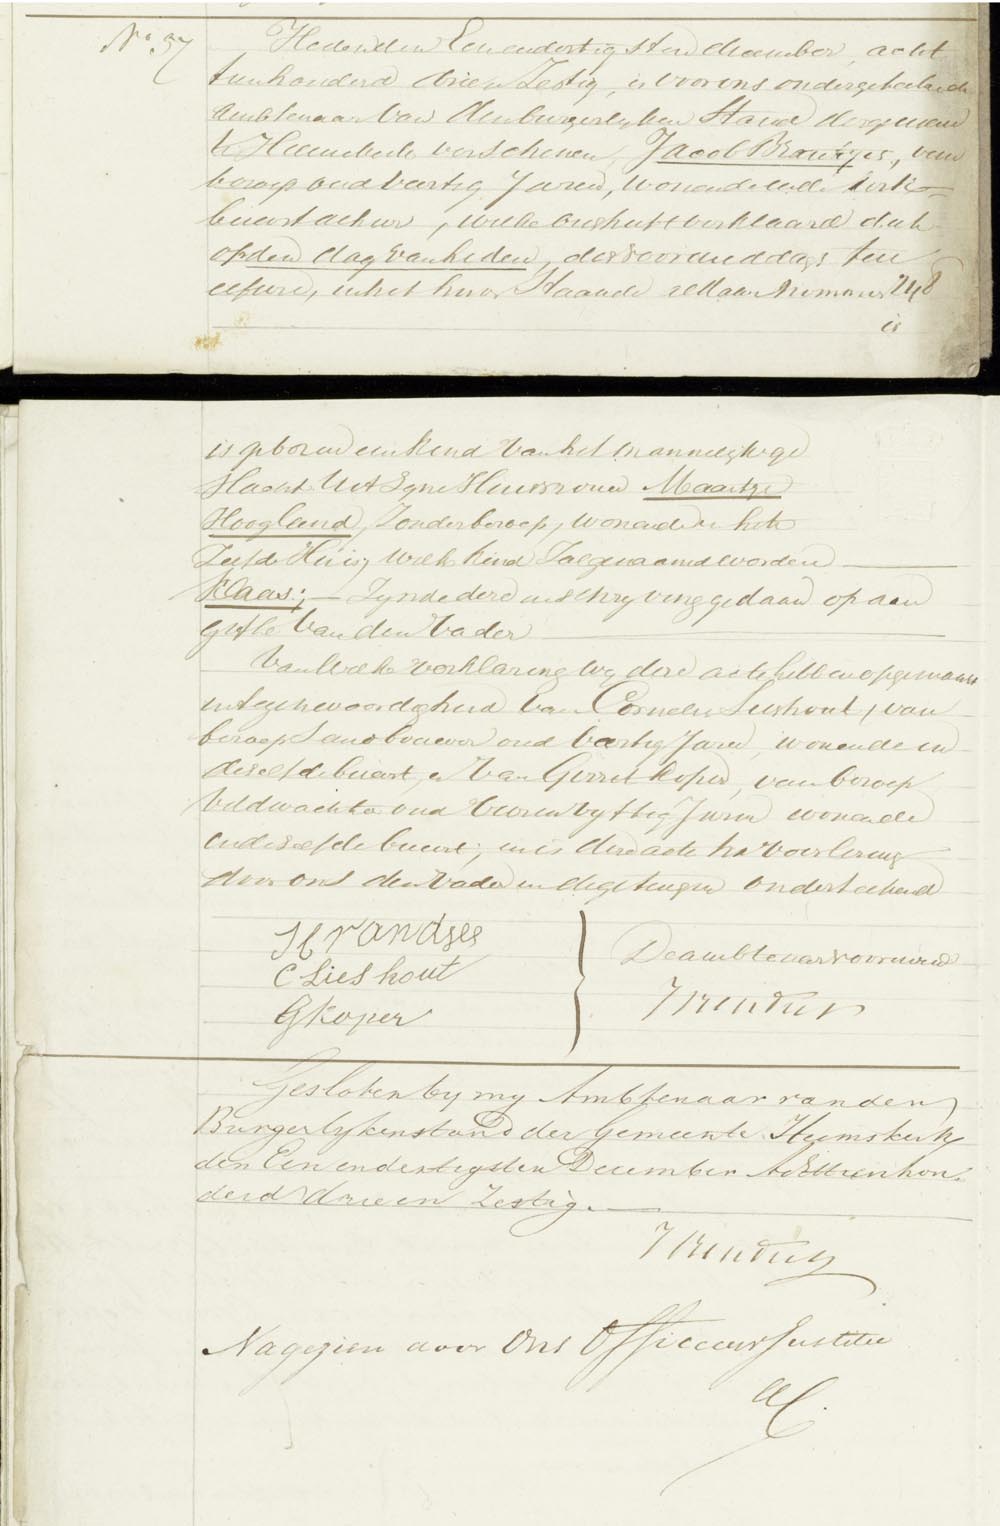 No. 37
Heden den Een en dertigsten december, acht
tienhonderd drie en Zestig, is voor ons ondergeteekende
ambtenaar van den burgerlyken Stand der gemeente
te Heemskerk verschenen, Jacob Brantjes, van
beroep oud veertig Jaren, wonende in de kerk
buurt alhier, welke ons heeft verklaard dat
op den dag van heden, des voormiddags tien
uure, in het huis Staande aldaar Nommer 248
is
is geboren een kind van het mannelyke ge
slacht Uit Zyne Huisvrouw Maartje
Hoogland, Zonder beroep, wonende in het
Zelfde Huis, welk kind Zal genaamd worden
Klaas; Zynde dere inschryving gedaan op aan
gifte van den Vader
Van Welke verklaring wy dere acte hebben opgemaakt
in tegenwoordigheid van Cornelis Lieshout, van
beroep Landbouwer oud veertig Jaren, wonende in
deselfde buurt, en Van Gerrit Koper, van beroep
Veldwachter oud vier en vyftig Jaren wonende
in deselfde buurt; en is dere acte na voorlezing
door ons den Vader en de getuigen onderteekend
C Lieshout
G Koper
De ambtenaar voornoemd
Gesloten by my Ambtenaar van den
Burgerlyken stand der Gemeente Heemskerk
den Een en dertigsten December Achttienhon-
derd drie en Zestig.
Nagezien door Ons Officier Justitie